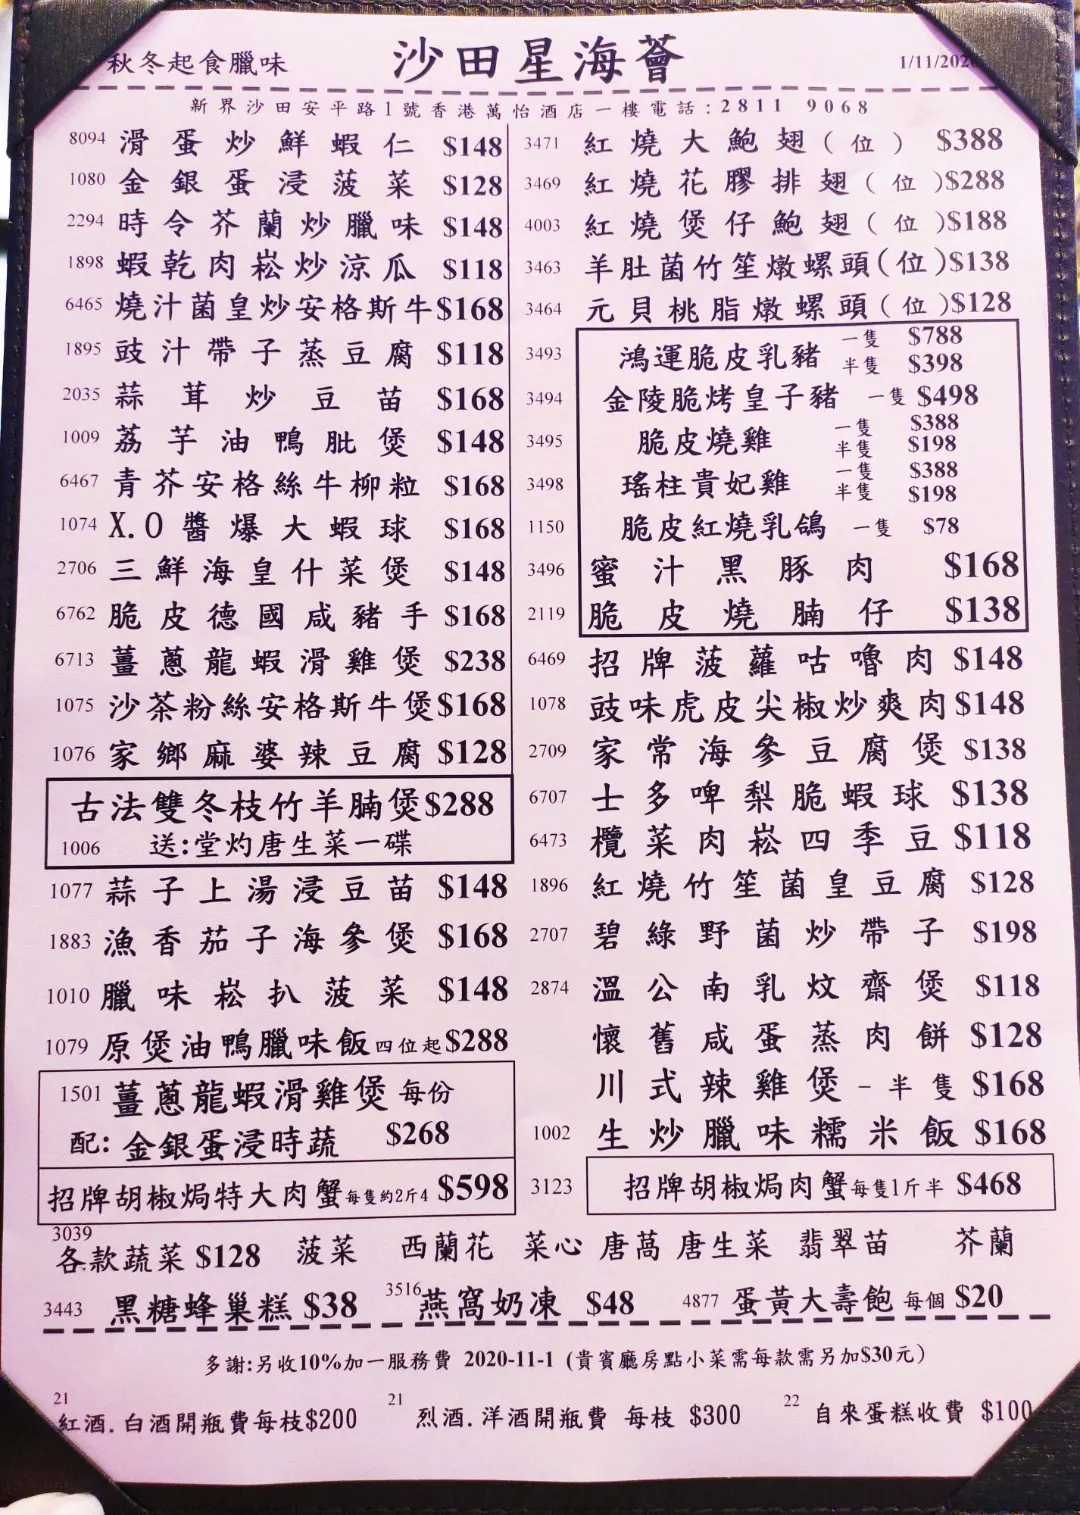 秋冬起食臘味
沙田星海薈
1/11/2020
新界沙田安平路1號香港萬怡酒店一樓電話:2811 9068
8094 滑蛋炒鮮蝦仁 $148
1080 金銀蛋浸菠菜 $128
2294 時令芥蘭炒臘味 $148
1898 蝦乾肉崧炒涼瓜 $118
6465 燒汁菌皇炒安格斯牛 $168
1895 豉汁帶子蒸豆腐 $118
2035 蒜茸炒豆苗 $168
1009 荔芋油鴨肶煲 $148
6467 青芥安格絲牛柳粒 $168
1074 X.O醬爆大蝦球 $168
2706 三鮮海皇什菜煲 $148
6762 脆皮德國咸豬手 $168
6713 薑蔥龍蝦滑雞煲 $238
1075 沙茶粉絲安格斯牛煲 $168
1076 家鄉麻婆辣豆腐 $128
古法雙冬枝竹羊腩煲 $288
1006 送:堂灼唐生菜一碟
1077 蒜子上湯浸豆苗 $148
1883 漁香茄子海參煲 $168
1010 臘味崧扒菠菜 $148
1079 原煲油鴨臘味飯 四位起 $288
1501 薑蔥龍蝦滑雞煲 每份
配: 金銀蛋浸時蔬 $268
招牌胡椒焗特大肉蟹 每隻約2斤4 $598
3471 紅燒大鮑翅(位) $388
3469 紅燒花膠排翅(位) $288
4003 紅燒煲仔鮑翅(位) $188
3463 羊肚菌竹笙燉螺頭(位) $138
3464 元貝桃脂燉螺頭(位) $128
3493 鴻運脆皮乳豬 一隻 $788
半隻 $398
3494 金陵脆烤皇子豬 一隻 $498
3495 脆皮燒雞 一隻 $388
半隻 $198
3498 瑤柱貴妃雞 一隻 $388
半隻 $198
1150 脆皮紅燒乳鴿 一隻 $78
3496 蜜汁黑豚肉 $168
2119 脆皮燒腩仔 $138
6469 招牌菠蘿咕嚕肉 $148
1078 豉味虎皮尖椒炒爽肉 $148
2709 家常海參豆腐煲 $138
6707 士多啤梨脆蝦球 $138
6473 欖菜肉崧四季豆 $118
1896 紅燒竹笙菌皇豆腐 $128
2707 碧綠野菌炒帶子 $198
2874 溫公南乳炆齋煲 $118
懷舊咸蛋蒸肉餅 $128
川式辣雞煲 - 半隻 $168
1002 生炒臘味糯米飯 $168
3123 招牌胡椒焗肉蟹 每隻1斤半 $468
3039
各款蔬菜 $128 菠菜 西蘭花 菜心 唐萵 唐生菜 翡翠苗 芥蘭
3443 黑糖蜂巢糕 $38 3516 燕窩奶凍 $48 4877 蛋黃大壽飽 每個 $20
多謝:另收10%加一服務費 2020-11-1 (貴賓廳房點小菜需每款需另加$30元)
21 紅酒.白酒開瓶費每枝$200 21 烈酒.洋酒開瓶費 每枝 $300 22 自來蛋糕收費 $100